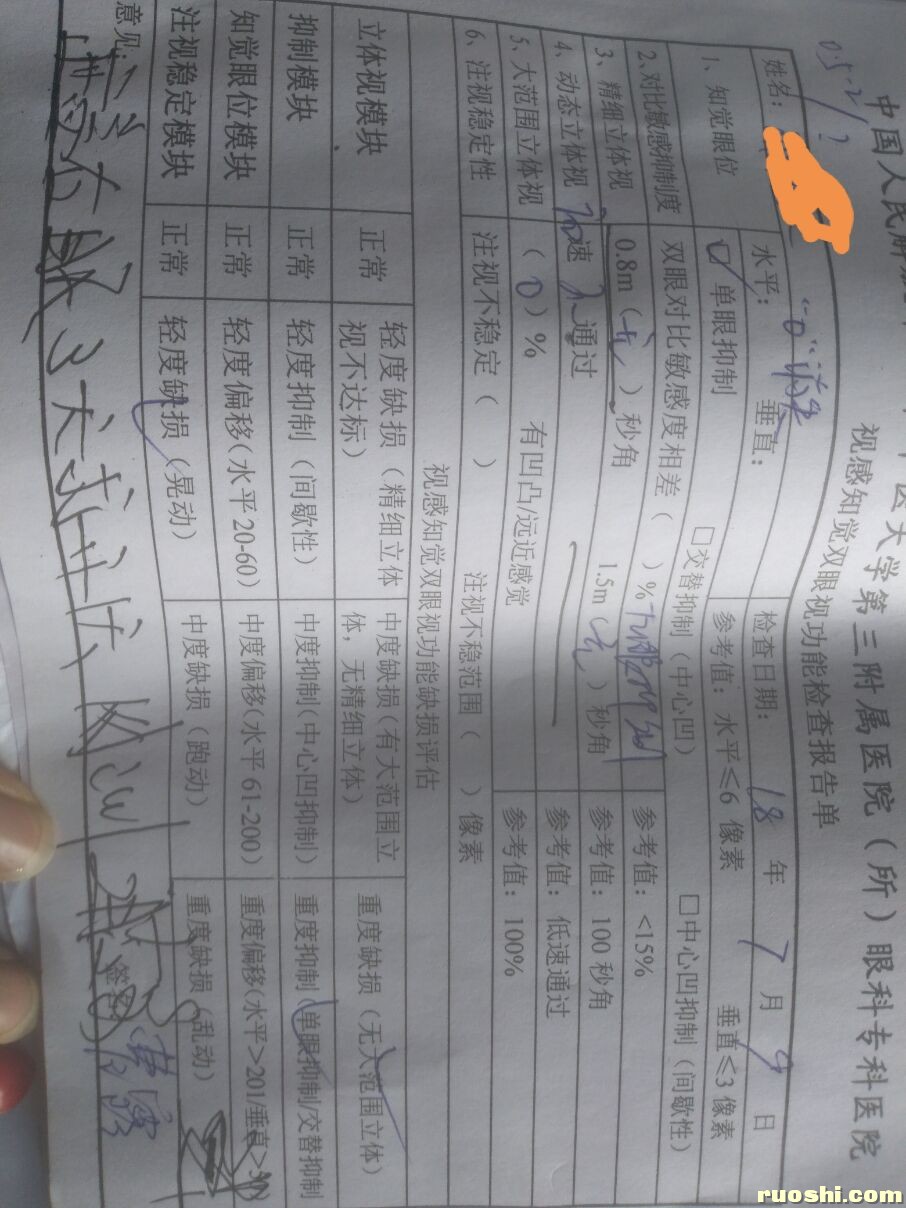 中国人民解 医大学第三附属医院（所）眼科专科医院
视感知觉双眼视功能检查报告单
0.5-2/?
姓名： 检查日期：18年7月9日
1、知觉眼位 水平： 垂直： 参考值：水平≤6像素 垂直≤3像素
2.对比敏感抑制度 单眼抑制 □交替抑制（中心凹） □中心凹抑制（间歇性）
双眼对比敏感度相差（ ）% 参考值：<15%
3、精细立体视 0.8m（无）秒角 1.5m（无）秒角 参考值：100秒角
4、动态立体视 速 通过 参考值：低速通过
5、大范围立体视 （0）% 有凹凸/远近感觉 参考值：100%
6、注视稳定性 注视不稳定（ ） 注视不稳范围（ ）像素
视感知觉双眼视功能缺损评估
立体视模块 正常 轻度缺损（精细立体视不达标） 中度缺损（有大范围立体，无精细立体） 重度缺损（无大范围立体）
抑制模块 正常 轻度抑制（间歇性） 中度抑制（中心凹抑制） 重度抑制（单眼抑制/交替抑制
知觉眼位模块 正常 轻度偏移（水平20-60） 中度偏移（水平61-200） 重度偏移（水平>201/垂直>
注视稳定模块 正常 轻度缺损（晃动） 中度缺损（跑动） 重度缺损（乱动）
意见： 签名
ruoshi.com